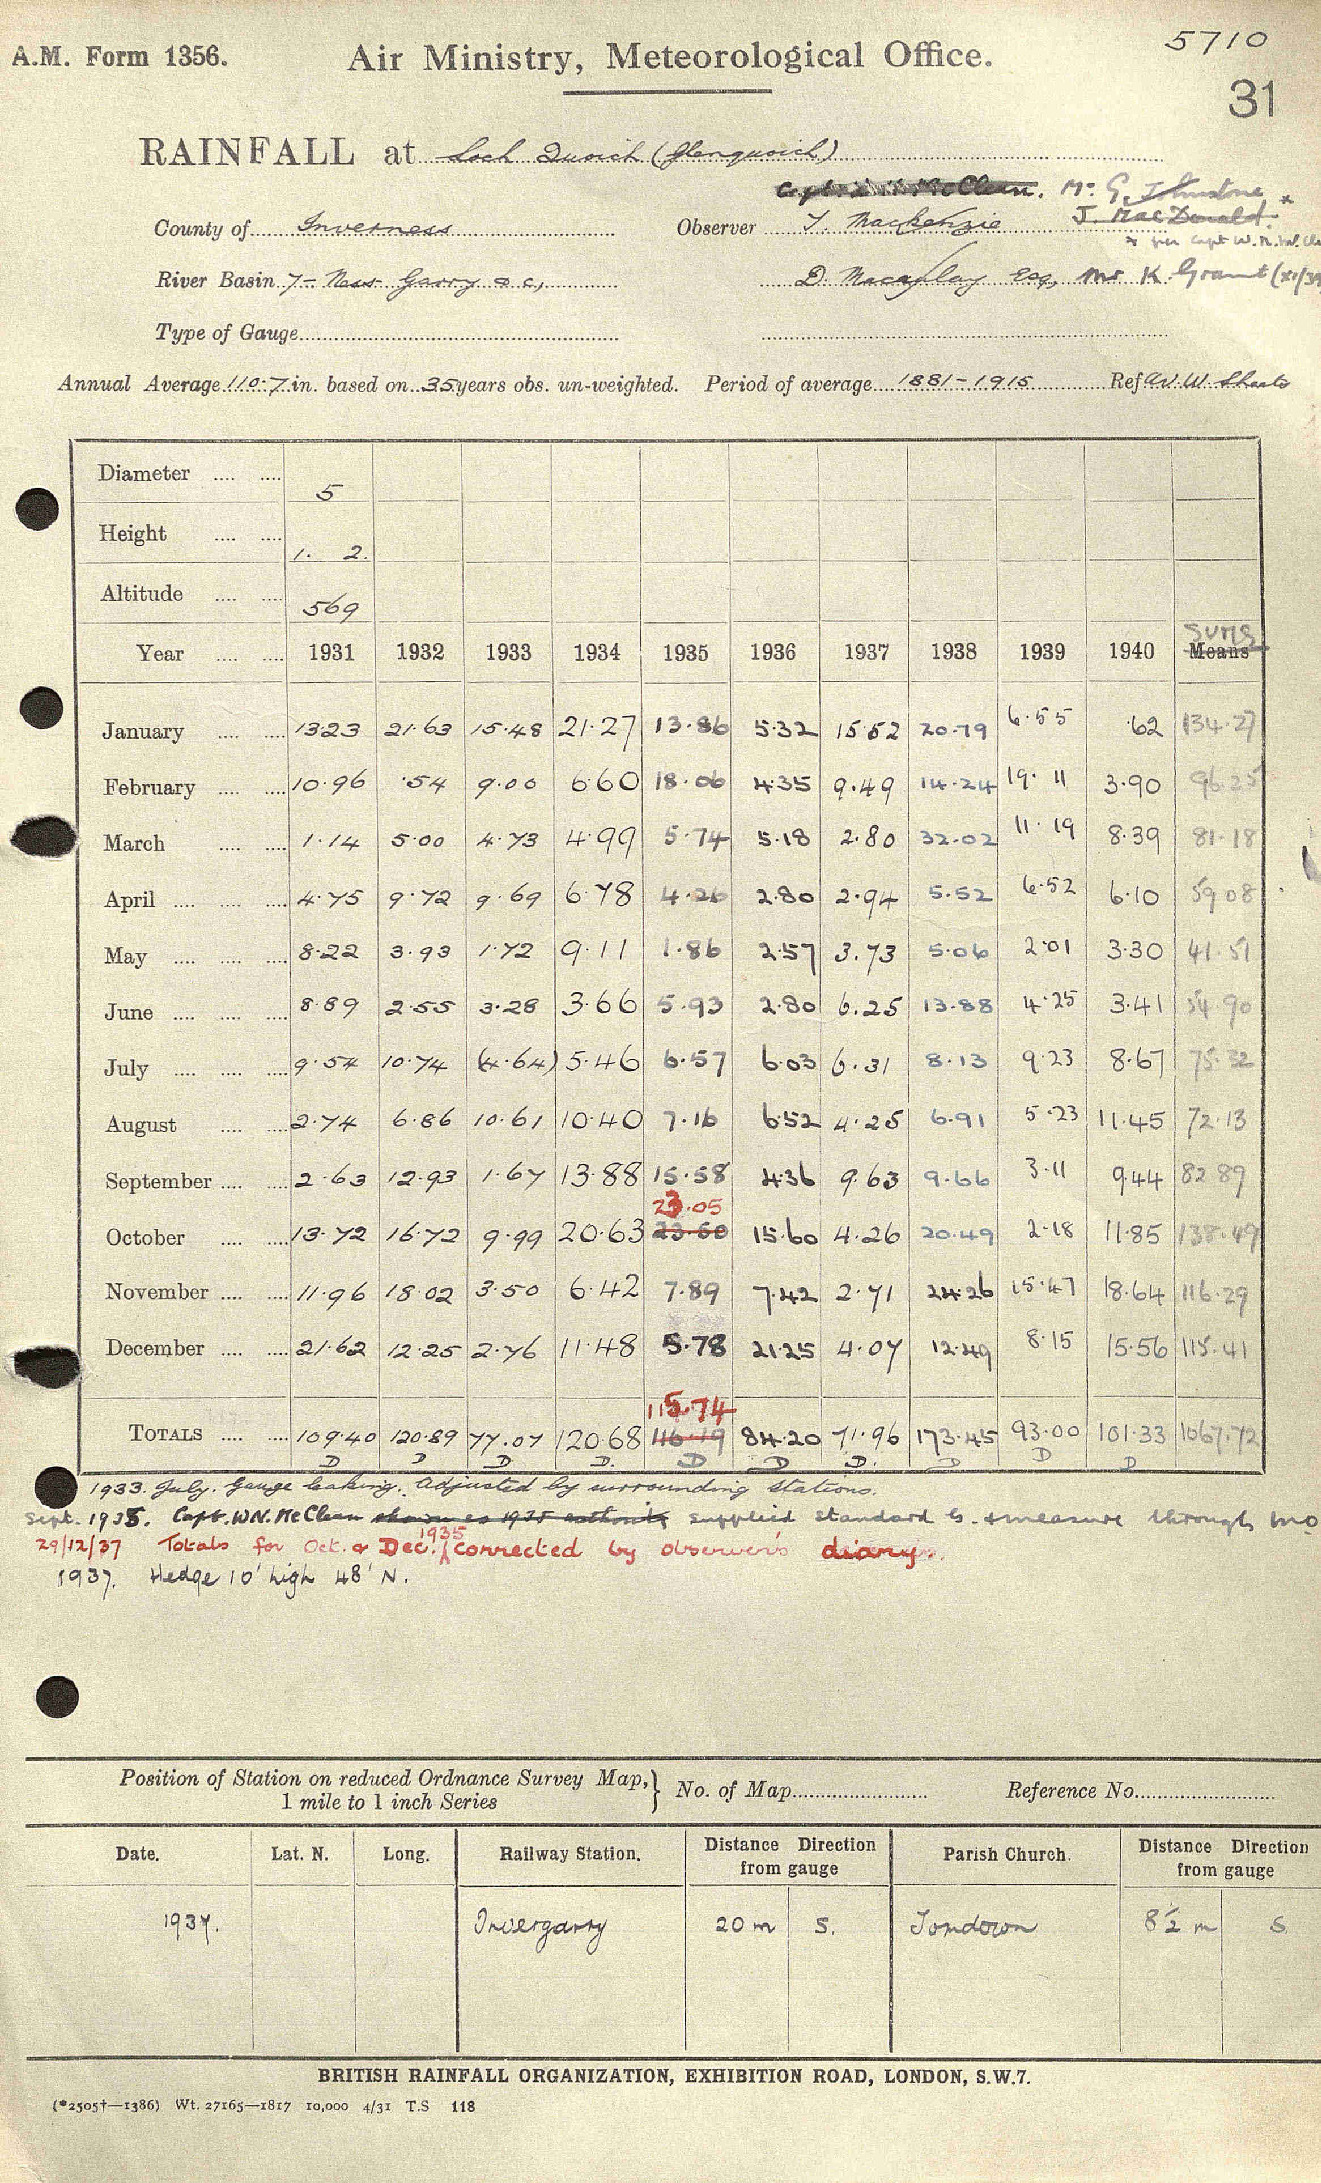 5710
A.M. Form 1356. Air Ministry, Meteorological Office.
31
RAINFALL at Loch Quoich (Glenquoich)
Capt. W. N. McClean. Mr. G. Johnstone *
County of Inverness Observer T. Mackenzie J. MacDonald.
* per Capt W.N. McCle
River Basin 7- Ness Garry &c, D. Macaulay Esq, Mr K. Grant (xi/39
Type of Gauge
Annual Average 110.7 in. based on 35 years obs. un-weighted. Period of average 1881-1915 Ref Av. W. Sheets
Diameter 5
Height 1. 2.
Altitude 569
Sums
Year 1931 1932 1933 1934 1935 1936 1937 1938 1939 1940 Means
January 13.23 21.63 15.48 21.27 13.86 5.32 15.52 20.79 6.55 .62 134.27
February 10.96 .54 9.00 6.60 18.06 4.35 9.49 14.24 19.11 3.90 96.25
March 1.14 5.00 4.73 4.99 5.74 5.18 2.80 32.02 11.19 8.39 81.18
April 4.75 9.72 9.69 6.78 4.26 2.80 2.94 5.52 6.52 6.10 59.08
May 8.22 3.93 1.72 9.11 1.86 2.57 3.73 5.06 2.01 3.30 41.51
June 8.89 2.55 3.28 3.66 5.93 2.80 6.25 13.88 4.25 3.41 54.90
July 9.54 10.74 (4.64) 5.46 6.57 6.03 6.31 8.13 9.23 8.67 75.32
August 2.74 6.86 10.61 10.40 7.16 6.52 4.25 6.91 5.23 11.45 72.13
September 2.63 12.93 1.67 13.88 15.58 4.36 9.63 9.66 3.11 9.44 82.89
23.05
October 13.72 16.72 9.99 20.63 23.50 15.60 4.26 20.49 2.18 11.85 138.49
November 11.96 18.02 3.50 6.42 7.89 7.42 2.71 24.26 15.47 18.64 116.29
December 21.62 12.25 2.76 11.48 5.78 21.25 4.07 12.49 8.15 15.56 115.41
115.74
TOTALS 109.40 120.89 77.07 120.68 116.19 84.20 71.96 173.45 93.00 101.33 1067.72
D D D D. D D D. D D D
1933. July. Gauge leaking. Adjusted by surrounding stations.
Sept. 1935. Capt. W.N. McClean shown as 1935 authority supplied standard G. + measure through M.O
29/12/37 Totals for Oct. & Dec. 1935 corrected by observer's diary.
1937. Hedge 10' high 48' N.
Position of Station on reduced Ordnance Survey Map, } No. of Map Reference No.
1 mile to 1 inch Series
Date. Lat. N. Long. Railway Station. Distance Direction from gauge Parish Church. Distance Direction from gauge
1937. Invergarry 20 m S. Tomdoun 8½ m S
BRITISH RAINFALL ORGANIZATION, EXHIBITION ROAD, LONDON, S.W.7.
(*2505†—1386) Wt. 27165—1817 10,000 4/31 T.S 118